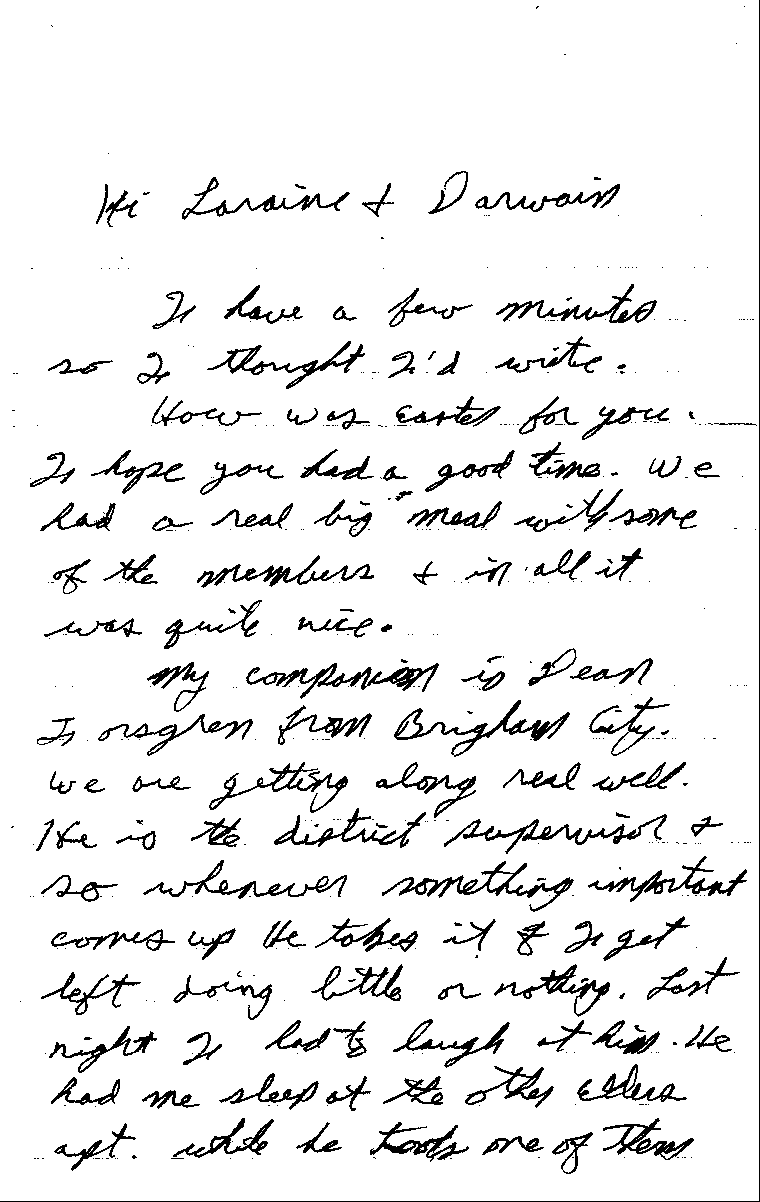 Hi Laraine & Darwain
I have a few minutes
so I thought I'd write.
How was easter for you.
I hope you had a good time. We
had a real big meal with some
of the members & in all it
was quite nice.
My companion is Dean
from Brigham City.
We are getting along real well.
He is the district supervisor &
so whenever something important
comes up He takes it & I get
left doing little or nothing. Last
night I had to laugh at him. He
had me sleep at the other Elders
apt. while he took one of them